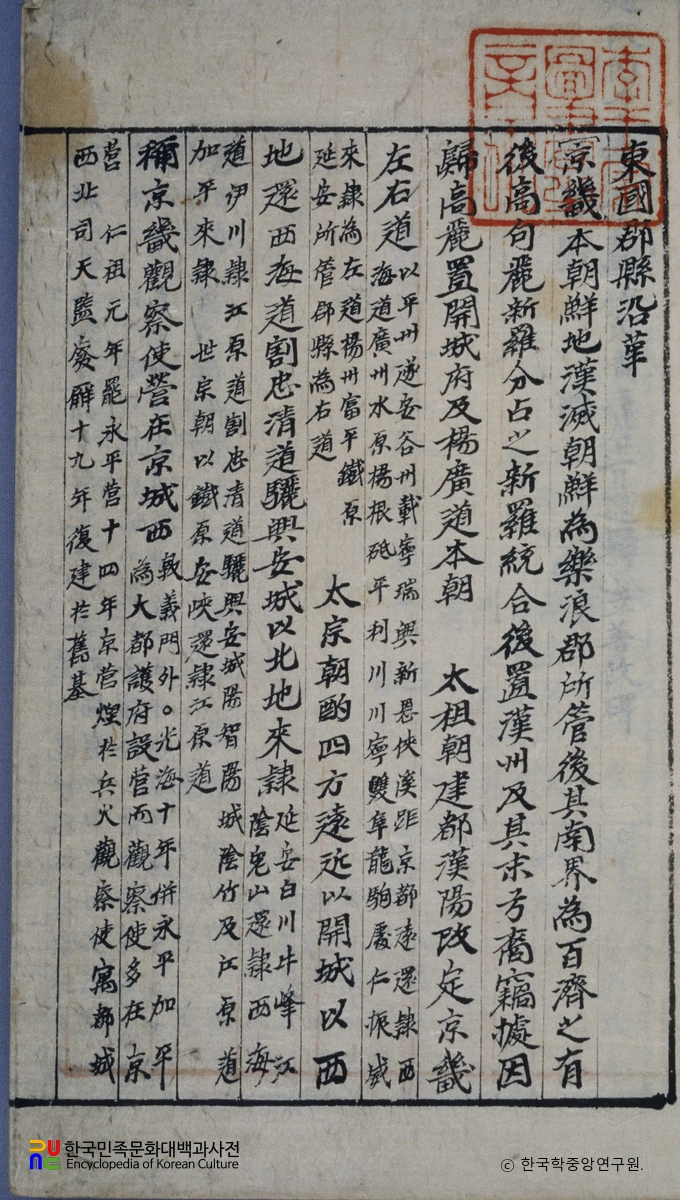 東國郡縣沿革
京畿本朝鮮地漢滅朝鮮為樂浪郡所管後其南界為百濟之有
後高句麗新羅分占之新羅統合後置漢州及其末弓裔竊據因
歸高麗置開城府及楊廣道本朝 太祖朝建都漢陽改定京畿
左右道
以平州遂安谷州載寧瑞興新恩俠溪距京都遠還隷西
海道廣州水原楊根砥平利川川寧雙阜龍駒處仁振威
來隷為左道楊州富平鐵原
延安所管郡縣為右道
太宗朝酌四方遠近以開城以西
地還西海道割忠清道驪興安城以北地來隷
延安白川牛峰江
陰兔山還隷西海
道伊川隷江原道割忠清道驪興安城陽智陽城陰竹及江原道
加平來隷 世宗朝以鐵原安峽還隷江原道
稱京畿觀察使營在京城西
敦義門外。光海十年併永平加平
為大都護府設營而觀察使多在京
營 仁祖元年罷永平營十四年京營煋於兵火觀察使寓都城
西北司天監處廨十九年復建於舊基
한국민족문화대백과사전
Encyclopedia of Korean Culture
ⓒ 한국학중앙연구원.